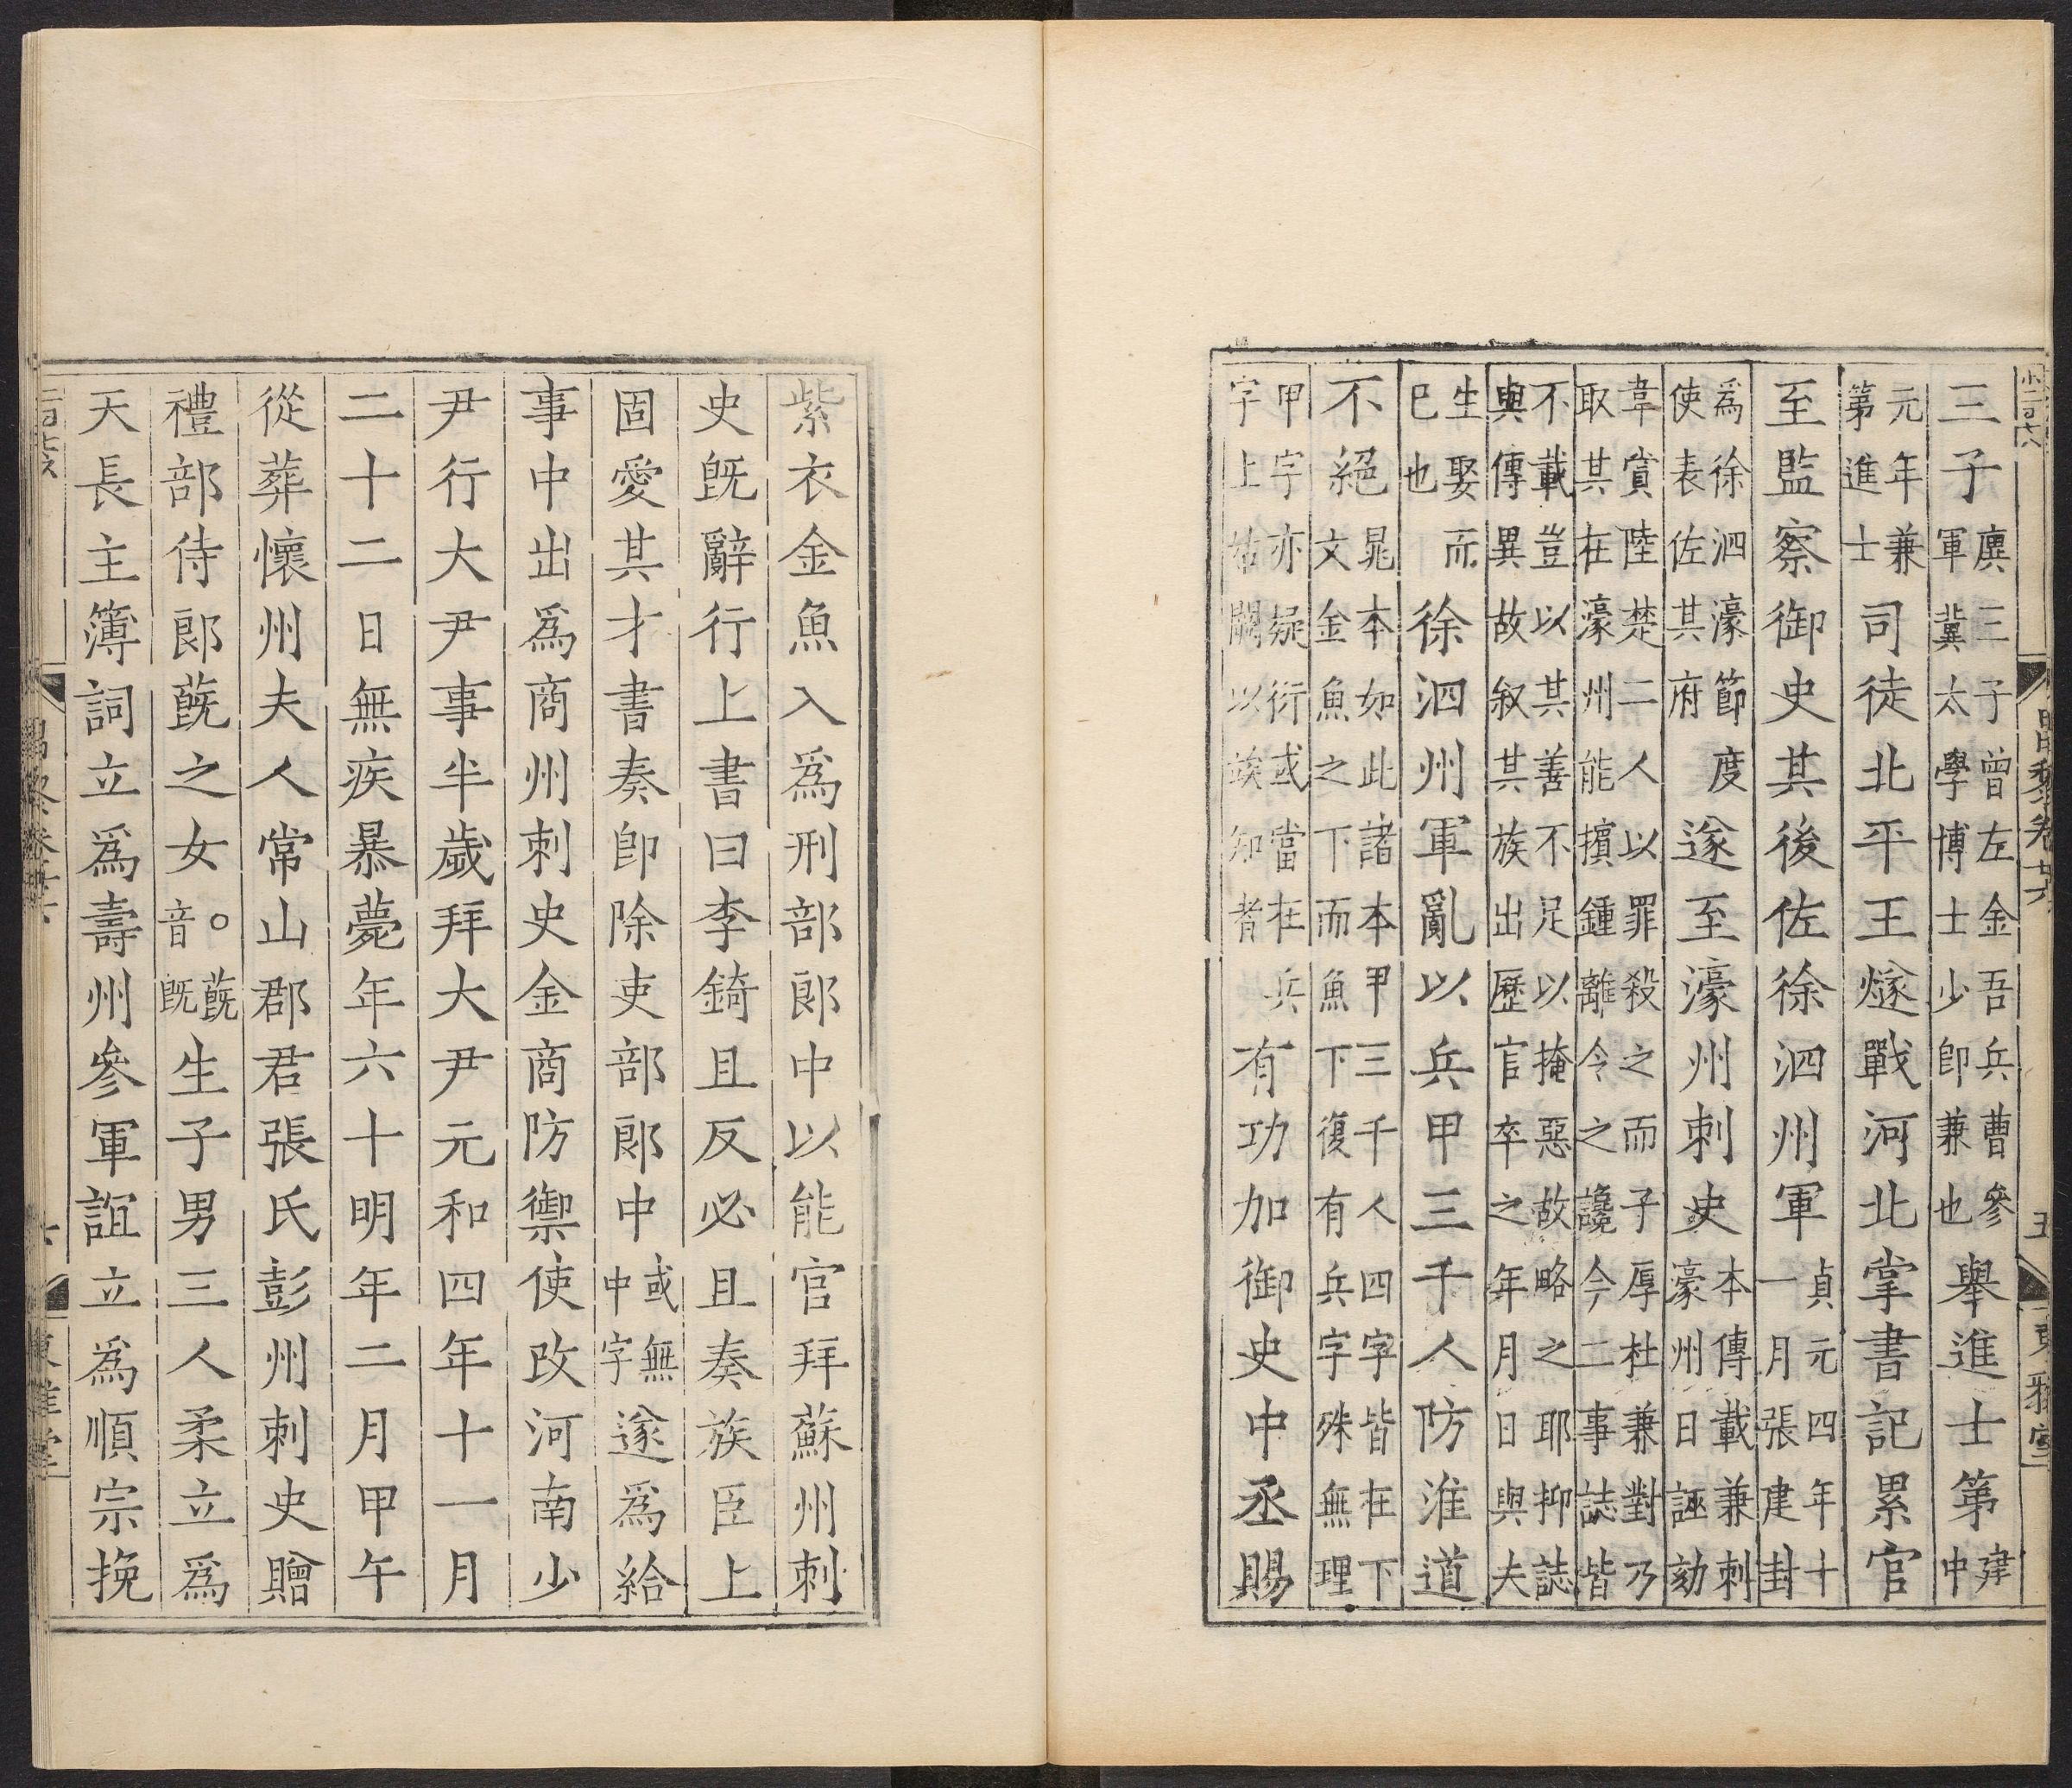 三子廙三子曾左金吾兵曹參軍冀太學博士少卽兼也舉進士第建中
元年兼第進士司徒北平王燧戰河北掌書記累官
至監察御史其後佐徐泗州軍貞元四年十一月張建封
爲徐泗濠節度使表佐其府遂至濠州刺史本傳載兼刺濠州日誣劾
韋賞陸楚二人以罪殺之而子厚杜兼對乃取其在濠州能擯鍾離令之讒今二事誌皆
不載豈以其善不足以掩惡故略之耶抑誌與傳異故叙其族出歷官卒之年月日與夫
生娶而巳也徐泗州軍亂以兵甲三千人防淮道
不絕晁本如此諸本甲三千人四字皆在下文金魚之下而魚下復有兵字殊無理
甲字亦疑衍或當在兵字上姑闕以俟知者有功加御史中丞賜
昌黎卷廿六
五
東雅堂
紫衣金魚入爲刑部郎中以能官拜蘇州刺
史旣辭行上書曰李錡且反必且奏族臣上
固愛其才書奏卽除吏部郎中或無中字遂爲給
事中出爲商州刺史金商防禦使改河南少
尹行大尹事半歲拜大尹元和四年十一月
二十二日無疾暴薨年六十明年二月甲午
從葬懷州夫人常山郡君張氏彭州刺史贈
禮部侍郎蔇之女○蔇音旣生子男三人柔立爲
天長主簿詞立爲壽州參軍誼立爲順宗挽